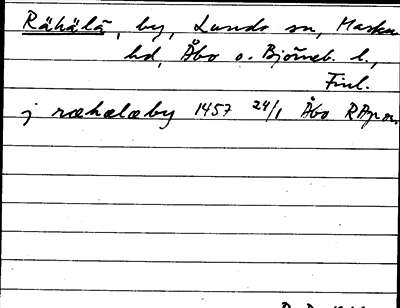 Rähälä, by, Lundo sn, Masku
hd, Åbo o. Björneb. l.,
Finl.
j ræhælæby 1457 24/1 Åbo RApn.